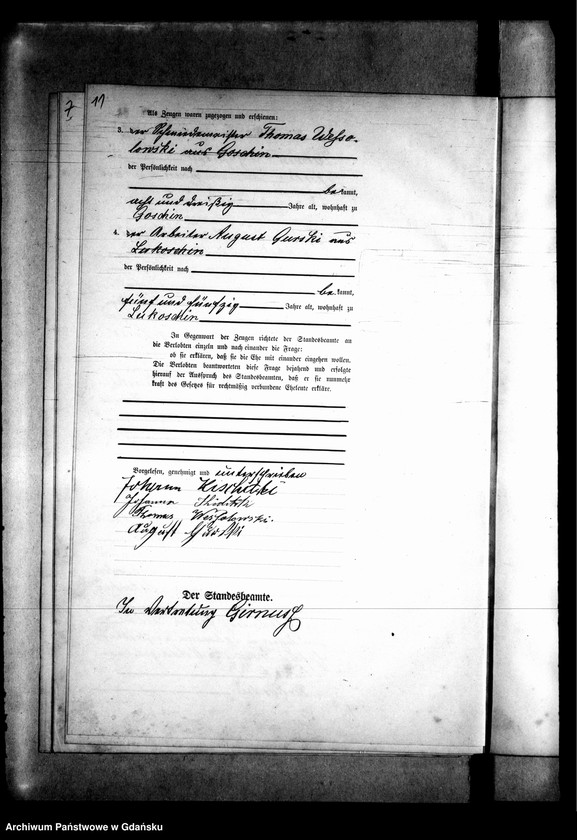 7
11
Als Zeugen waren zugezogen und erschienen:
3. der Schmiedemeister Thomas Wesso-
lowski aus Goschin
der Persönlichkeit nach
be kannt,
acht und dreißig Jahre alt, wohnhaft zu
Goschin
4. der Arbeiter August Gurski aus
Lukoschin
der Persönlichkeit nach
be kannt,
fünf und fünfzig Jahre alt, wohnhaft zu
Lukoschin
In Gegenwart der Zeugen richtete der Standesbeamte an
die Verlobten einzeln und nach einander die Frage:
ob sie erklären, daß sie die Ehe mit einander eingehen wollen.
Die Verlobten beantworteten diese Frage bejahend und erfolgte
hierauf der Ausspruch des Standesbeamten, daß er sie nunmehr
kraft des Gesetzes für rechtmäßig verbundene Eheleute erkläre.
Vorgelesen, genehmigt und unterschrieben
Johann
Johanna
Thomas Wessolowski.
August Gurski
Der Standesbeamte.
In Vertretung
Archiwum Państwowe w Gdańsku